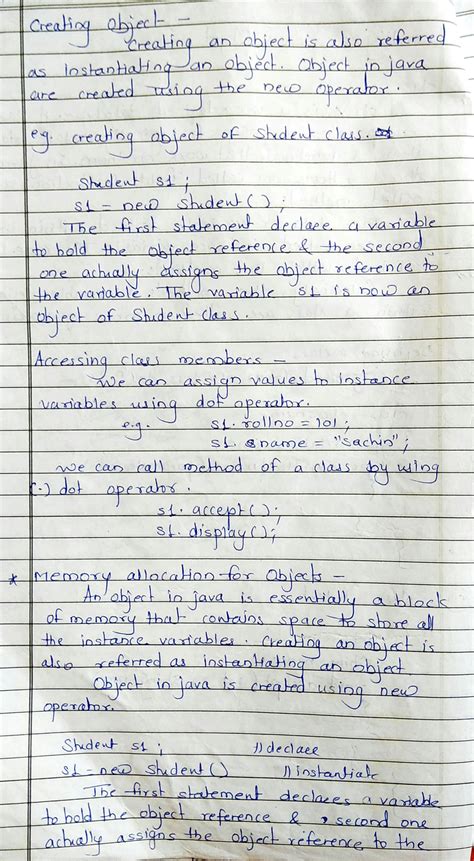 Creating Object -
Creating an object is also referred
as Instantiating an object. Object in java
are created using the new operator.
eg. creating object of Student class.
Student s1 ;
s1 = new Student() ;
The first statement declare a variable
to hold the object reference & the second
one actually assigns the object reference to
the variable. The variable s1 is now an
object of Student class.
Accessing class members -
We can assign values to instance
variables using dot operator.
e.g. s1. rollno = 101 ;
s1. sname = "Sachin" ;
We can call method of a class by using
(.) dot operator.
s1. accept();
s1. display();
* Memory allocation for Objects -
An object in java is essentially a block
of memory that contains space to store all
the instance variables. Creating an object is
also referred as instantiating an object
Object in java is created using new
operator.
Student s1 ; //declare
s1 = new Student() //instantiate
The first statement declares a variable
to hold the object reference & second one
actually assigns the object reference to the